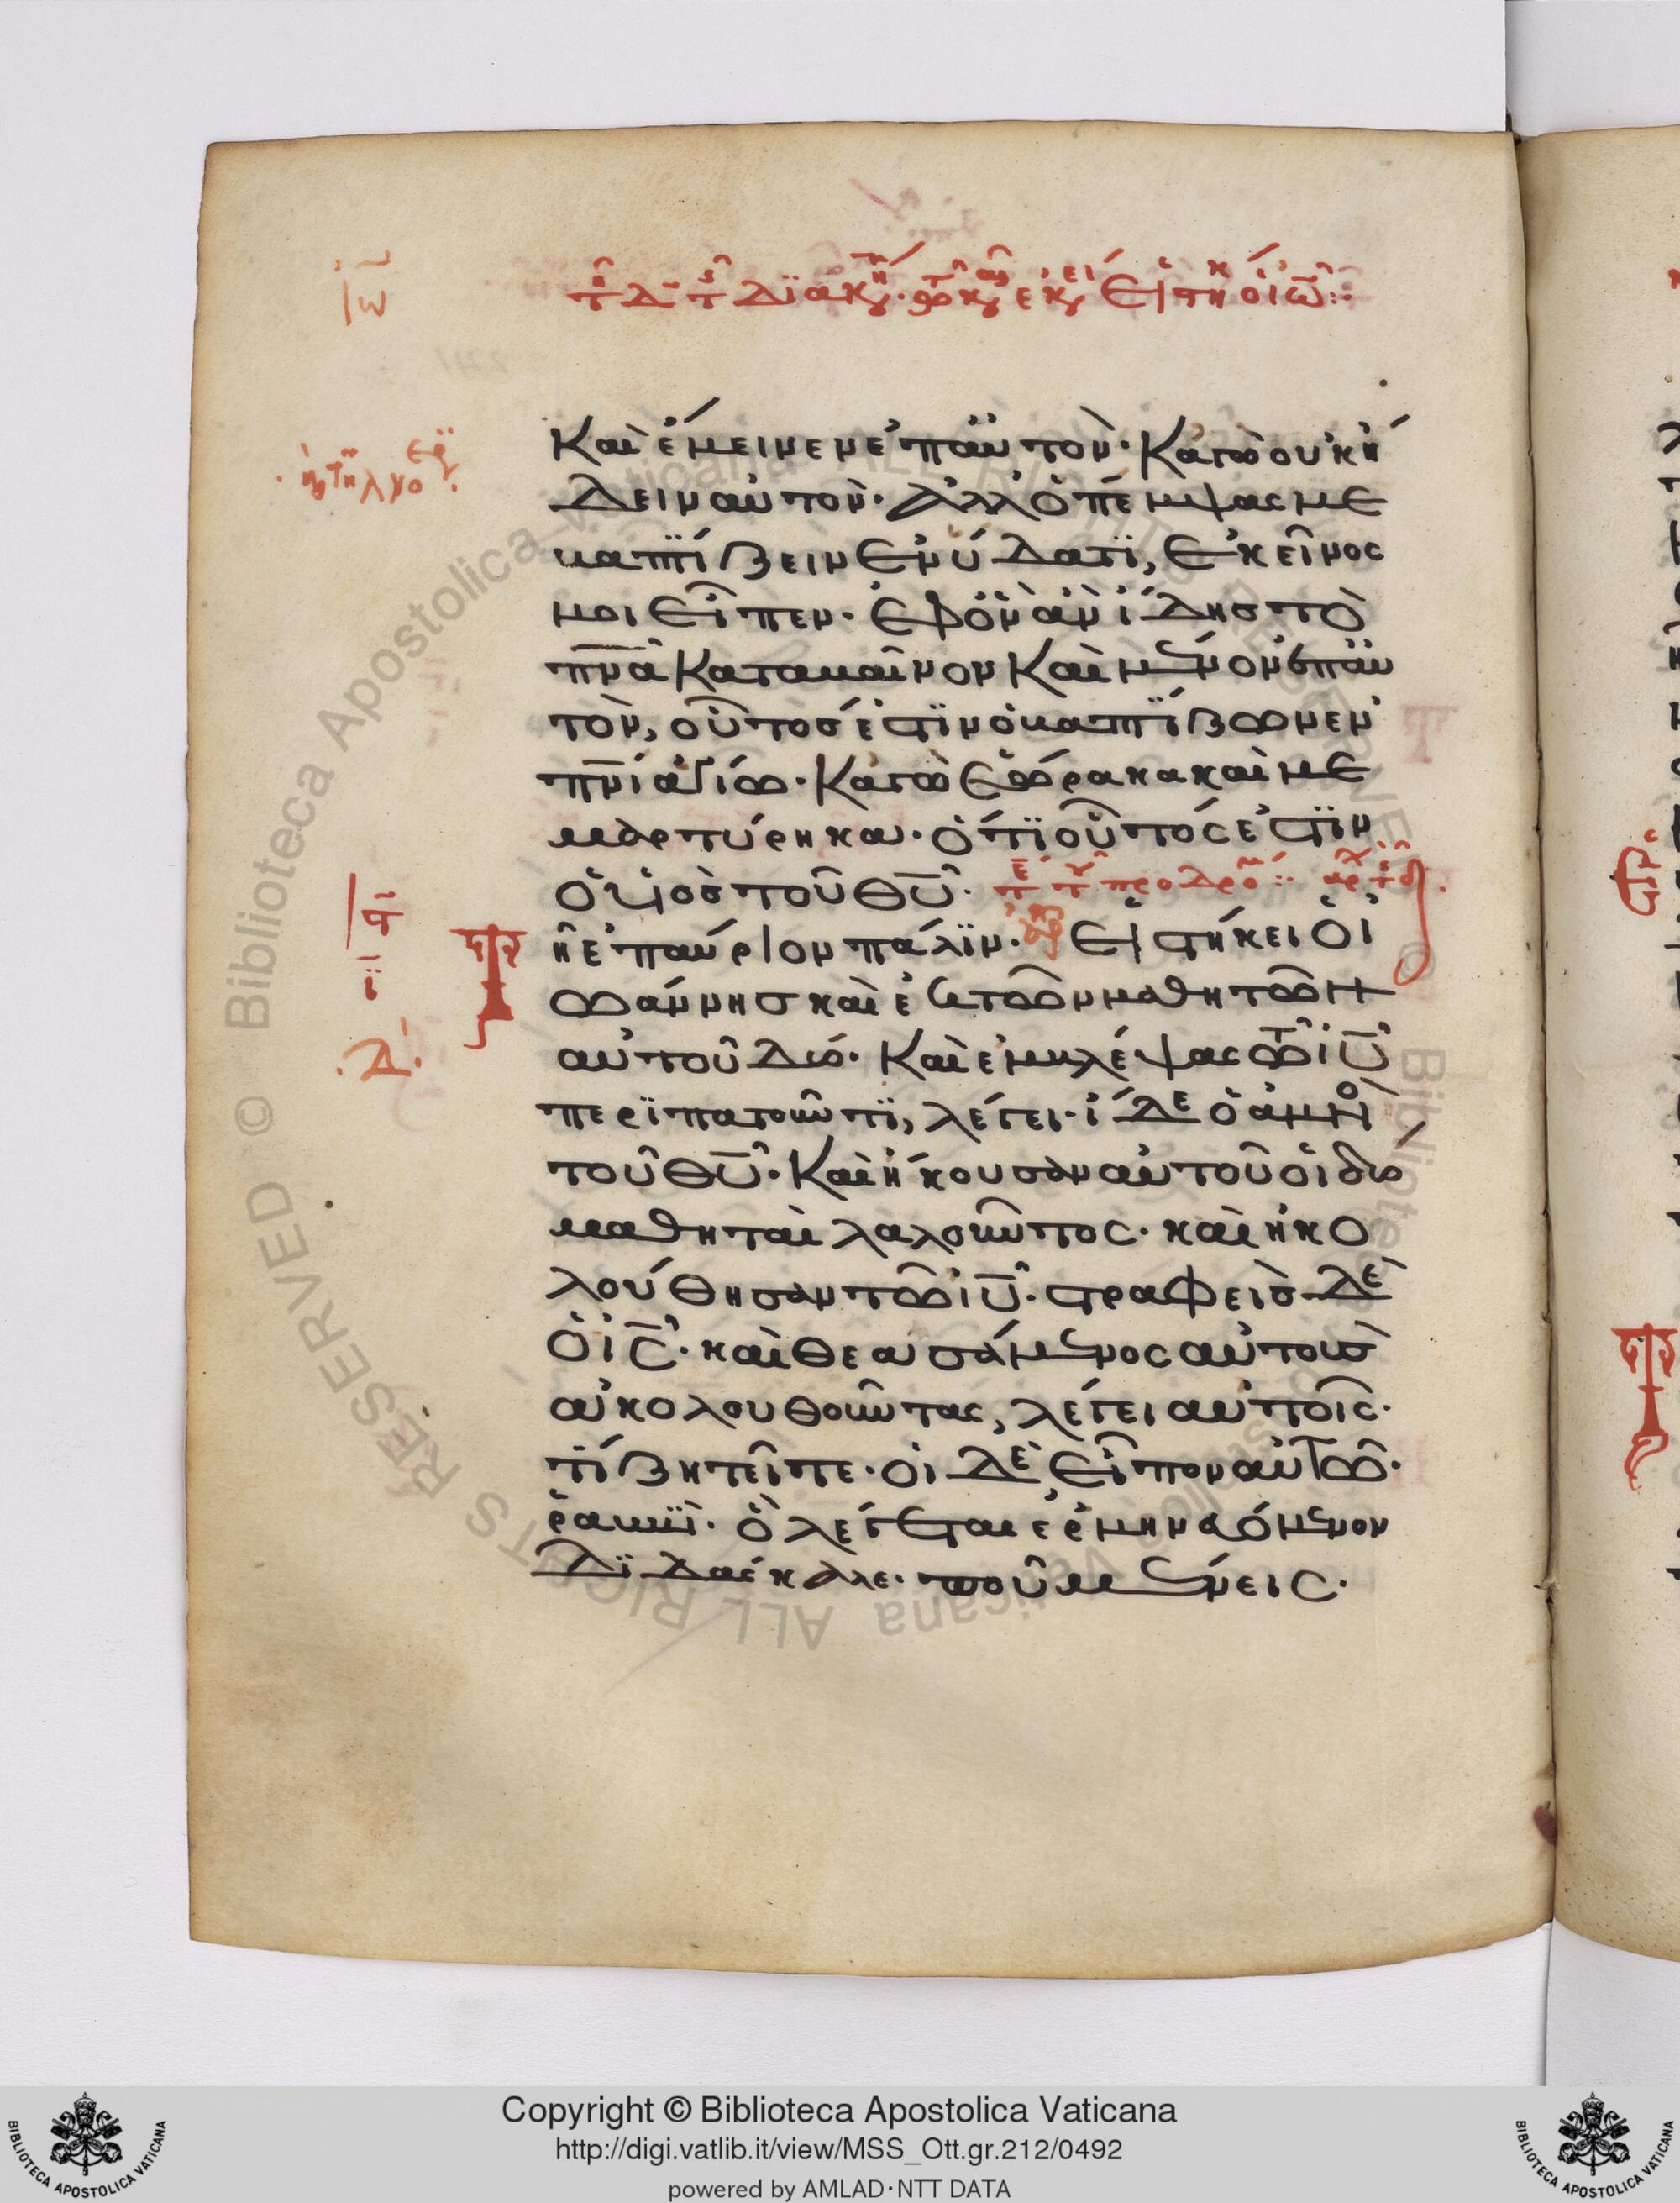 ιω
Καὶ ἔμεινεν ἐπ' αὐτόν. Κἀγὼ οὐκ ή
δειν αὐτόν. Ἀλλ' ὁ πέμψας με
βαπτίζειν ἐν ὕδατϊ, ἐκεῖνός
μοι εἶπεν. ἐφ' ὃν ἂν ἴδης τὸ
πνα Καταβαῖνον Καὶ μένον ἐπ' αὐ
τόν, οὗτός ἐστϊν ὁ βαπτίζων ἐν
πνι ἁγίω. Κἀγὼ ἑώρακα καὶ με
μαρτύρηκα. ὅτϊ οὗτός ἐστϊν
ὁ υἱὸς τοῦ θυ.
Τῆ ἐπαύριον πάλϊν. Εἱστήκει ὁ ἰ
ωάννης καὶ ἐκ τῶν μαθητῶν
αὐτοῦ δύο. Καὶ ἐμβλέψας τῶ ιυ
περϊπατοῦντϊ, λέγει. ἴδε ὁ ἀμνὸ
τοῦ θυ. Καὶ ἤκουσαν αὐτοῦ οἱ δύο
μαθηταὶ λαλοῦντος. καὶ ἠκο
λούθησαν τῶ ιυ. στραφεὶς δὲ
ὁ ις. καὶ θεασάμενος αὐτοὺς
ἀκολουθοῦντας, λέγει αὐτοῖς.
τί ζητεῖτε. οἱ δὲ εἶπον αὐτῶ.
ῥαββϊ. ὃ λέγεται ἑρμηνευόμενον
Δϊδάσκαλε. ποῦ μένεις.
Copyright © Biblioteca Apostolica Vaticana
http://digi.vatlib.it/view/MSS_Ott.gr.212/0492
powered by AMLAD·NTT DATA
BIBLIOTECA APOSTOLICA VATICANA
BIBLIOTECA APOSTOLICA VATICANA